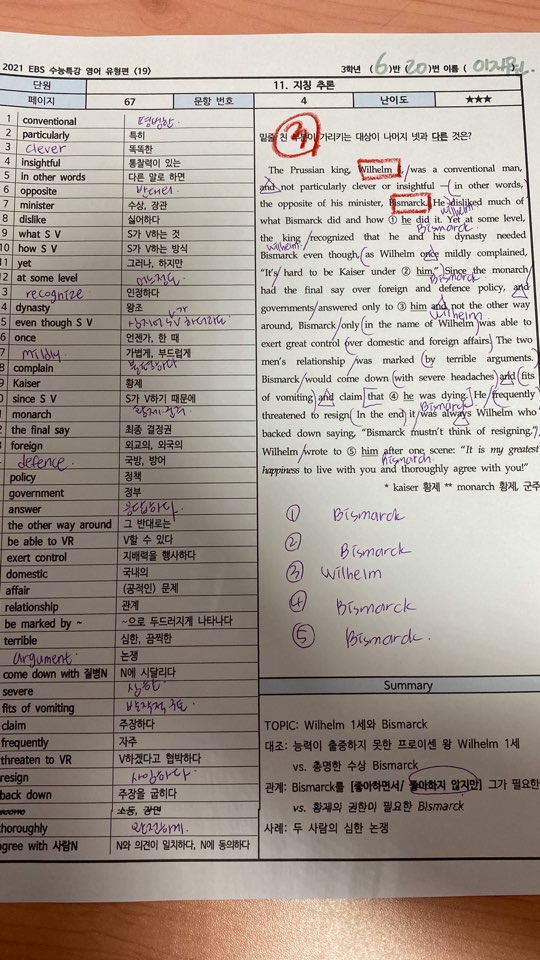 2021 EBS 수능특강 영어 유형편 〈19〉
3학년 ( 6 )반 ( 20 )번 이름 (
단원 11. 지칭 추론
페이지 67 문항 번호 4 난이도 ★★★
1 conventional 평범한
2 particularly 특히
3 clever 똑똑한
4 insightful 통찰력이 있는
5 in other words 다른 말로 하면
6 opposite 반대의
7 minister 수상, 장관
8 dislike 싫어하다
9 what S V S가 V하는 것
10 how S V S가 V하는 방식
11 yet 그러나, 하지만
12 at some level 어느정도
3 recognize 인정하다
4 dynasty 왕조
5 even though S V
6 once 언젠가, 한 때
7 mildly 가볍게, 부드럽게
8 complain
9 Kaiser 황제
0 since S V S가 V하기 때문에
1 monarch
2 the final say 최종 결정권
3 foreign 외교의, 외국의
defence 국방, 방어
policy 정책
government 정부
answer 응답하다
the other way around 그 반대로는
be able to VR V할 수 있다
exert control 지배력을 행사하다
domestic 국내의
affair (공적인) 문제
relationship 관계
be marked by ~ ~으로 두드러지게 나타나다
terrible 심한, 끔찍한
argument 논쟁
come down with 질병N N에 시달리다
severe 심한
fits of vomiting
claim 주장하다
frequently 자주
threaten to VR V하겠다고 협박하다
resign 사임하다
back down 주장을 굽히다
소동, 장면
thoroughly 완전하게
agree with 사람N N와 의견이 일치하다, N에 동의하다
3
밑줄 친 가리키는 대상이 나머지 넷과 다른 것은?
The Prussian king, Wilhelm I, was a conventional man,
and not particularly clever or insightful — in other words,
the opposite of his minister, Bismarck. He disliked much of
Wilhelm
what Bismarck did and how ① he did it. Yet at some level,
Bismarck
the king recognized that he and his dynasty needed
Wilhelm
Bismarck even though, as Wilhelm once mildly complained,
"It's hard to be Kaiser under ② him." Since the monarch
Bismarck
had the final say over foreign and defence policy, and
governments answered only to ③ him and not the other way
Wilhelm
around, Bismarck only in the name of Wilhelm was able to
exert great control over domestic and foreign affairs. The two
men's relationship was marked by terrible arguments.
Bismarck would come down with severe headaches and fits
of vomiting and claim that ④ he was dying. He frequently
Bismarck
threatened to resign. In the end it was always Wilhelm who
backed down saying, "Bismarck mustn't think of resigning."
Wilhelm wrote to ⑤ him after one scene: "It is my greatest
Bismarch
happiness to live with you and thoroughly agree with you!"
* kaiser 황제 ** monarch 황제, 군주
① Bismarck
② Bismarck
③ Wilhelm
④ Bismarck
⑤ Bismarck.
Summary
TOPIC: Wilhelm 1세와 Bismarck
대조: 능력이 출중하지 못한 프로이센 왕 Wilhelm 1세
vs. 총명한 수상 Bismarck
관계: Bismarck를 [좋아하면서/ 좋아하지 않지만] 그가 필요한
vs. 황제의 권한이 필요한 Bismarck
사례: 두 사람의 심한 논쟁